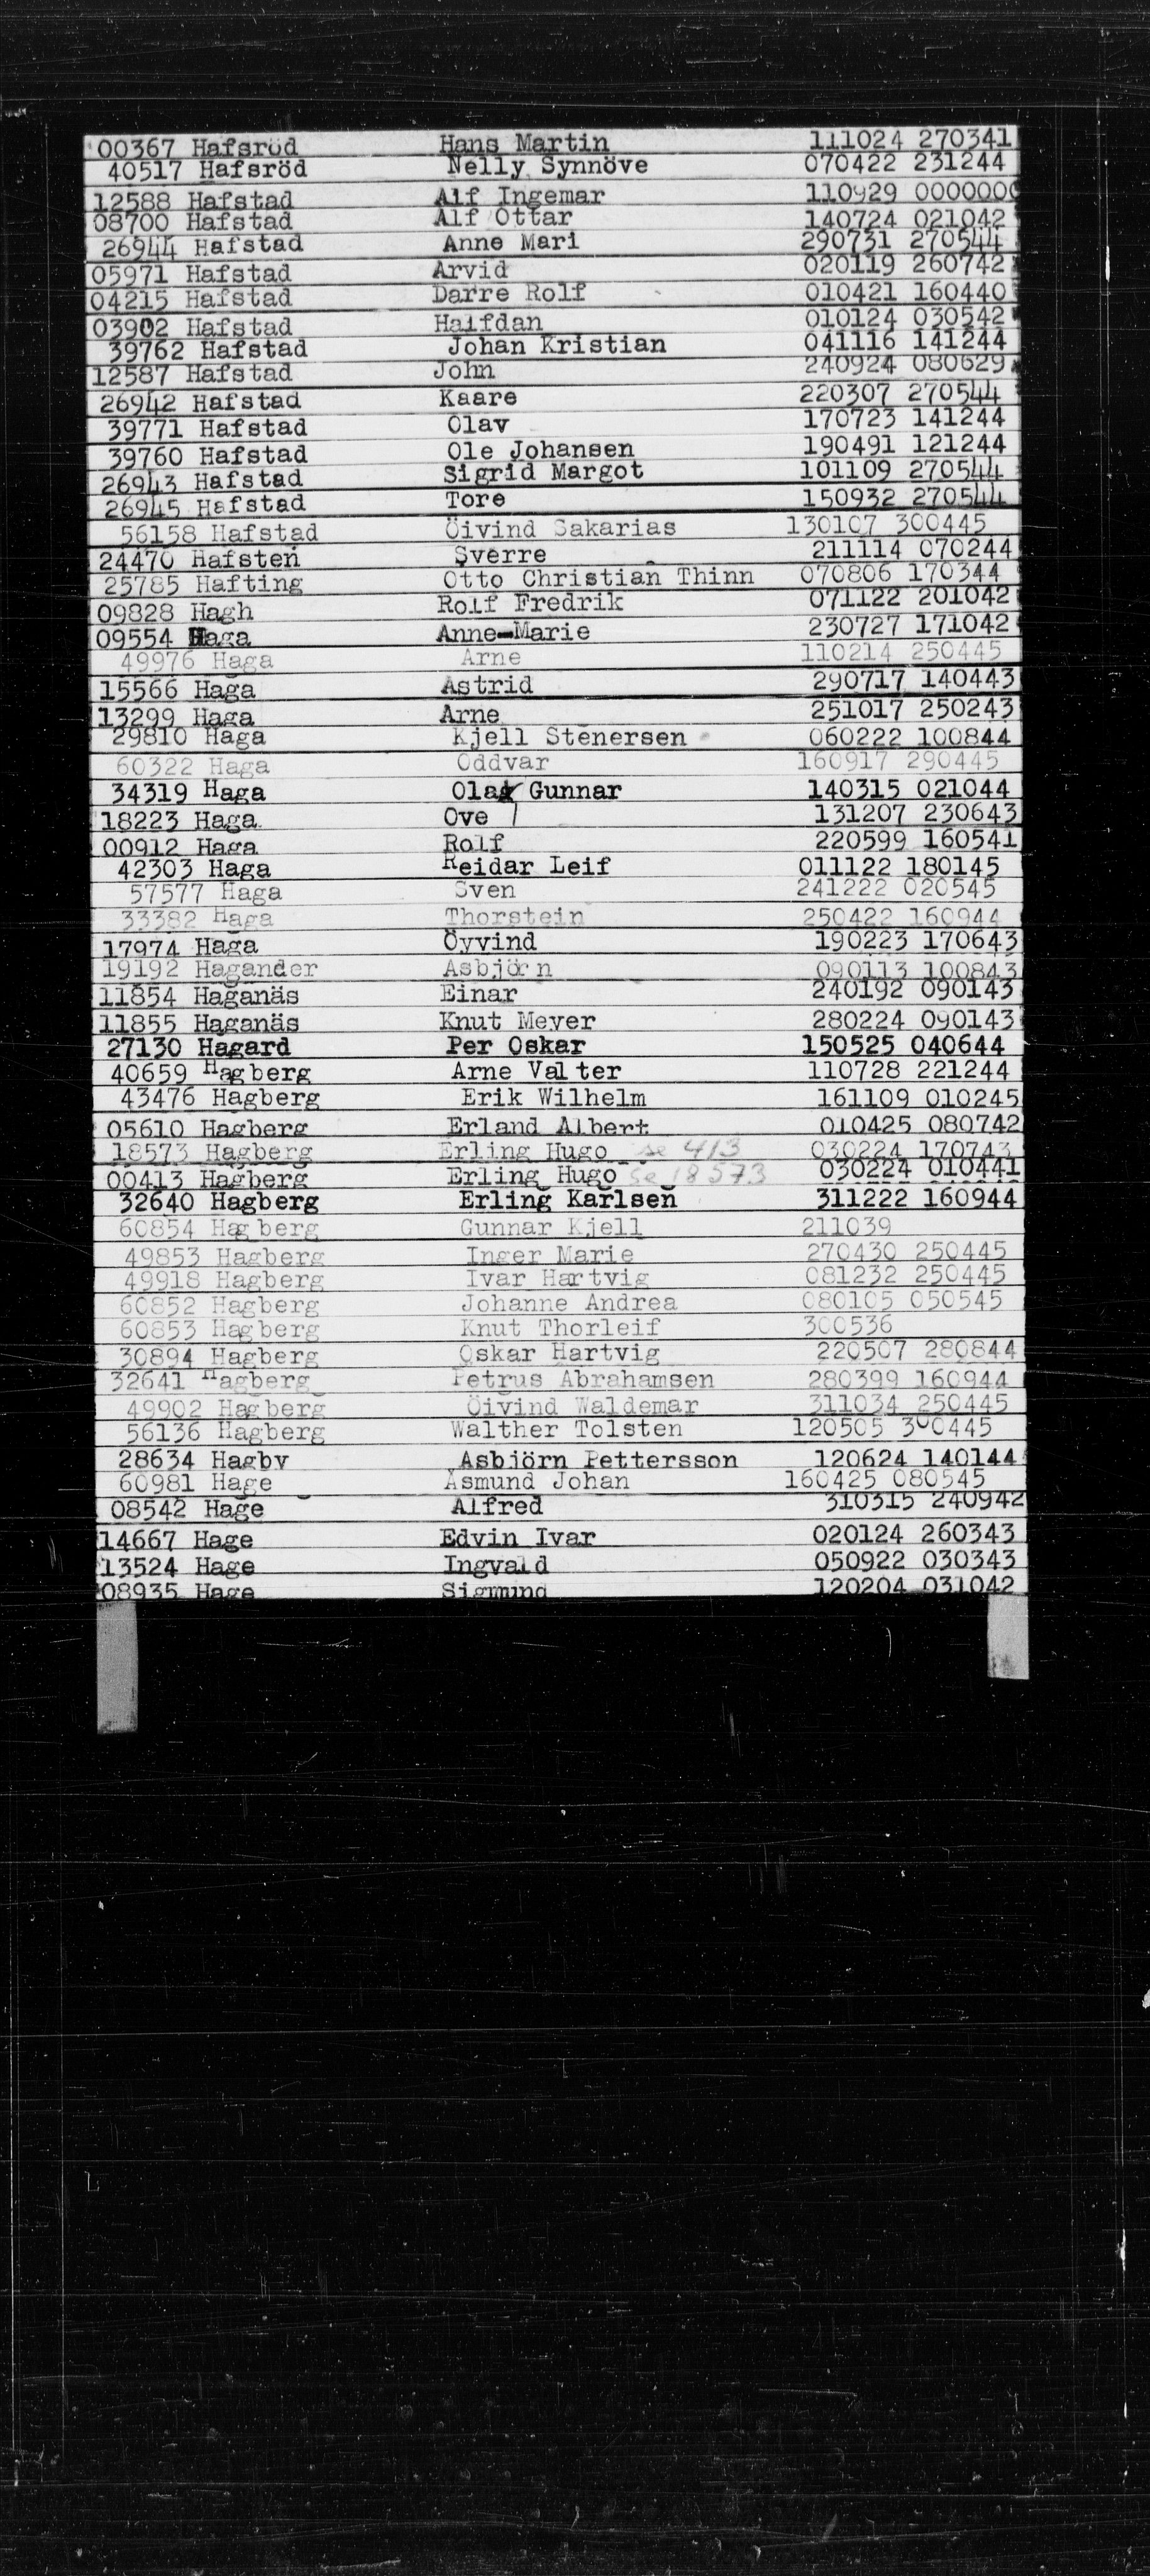 00367 Hafsröd Hans Martin 111024 270341
40517 Hafsröd Nelly Synnöve 070422 231244
12588 Hafstad Alf Ingemar 110929 000000
08700 Hafstad Alf Ottar 140724 021042
26944 Hafstad Anne Mari 290731 270544
05971 Hafstad Arvid 020119 260742
04215 Hafstad Darre Rolf 010421 160440
03902 Hafstad Halfdan 010124 030542
39762 Hafstad Johan Kristian 041116 141244
12587 Hafstad John 240924 080629
26942 Hafstad Kaare 220307 270544
39771 Hafstad Olav 170723 141244
39760 Hafstad Ole Johansen 190491 121244
26943 Hafstad Sigrid Margot 101109 270544
26945 Hafstad Tore 150932 270544
56158 Hafstad Öivind Sakarias 130107 300445
24470 Hafsten Sverre 211114 070244
25785 Hafting Otto Christian Thinn 070806 170344
09828 Hagh Rolf Fredrik 071122 201042
09554 Haga Anne-Marie 230727 171042
49976 Haga Arne 110214 250445
15566 Haga Astrid 290717 140443
13299 Haga Arne 251017 250243
29810 Haga Kjell Stenersen 060222 100844
60322 Haga Oddvar 160917 290445
34319 Haga Olaf Gunnar 140315 021044
18223 Haga Ove 131207 230643
00912 Haga Rolf 220599 160541
42303 Haga Reidar Leif 011122 180145
57577 Haga Sven 241222 020545
33382 Haga Thorstein 250422 160944
17974 Haga Öyvind 190223 170643
19192 Hagander Asbjörn 090113 100843
11854 Haganäs Einar 240192 090143
11855 Haganäs Knut Meyer 280224 090143
27130 Hagard Per Oskar 150525 040644
40659 Hagberg Arne Valter 110728 221244
43476 Hagberg Erik Wilhelm 161109 010245
05610 Hagberg Erland Albert 010425 080742
18573 Hagberg Erling Hugo se 413 030224 170743
00413 Hagberg Erling Hugo se 18573 030224 010441
32640 Hagberg Erling Karlsen 311222 160944
60854 Hagberg Gunnar Kjell 211039
49853 Hagberg Inger Marie 270430 250445
49918 Hagberg Ivar Hartvig 081232 250445
60852 Hagberg Johanne Andrea 080105 050545
60853 Hagberg Knut Thorleif 300536
30894 Hagberg Oskar Hartvig 220507 280844
32641 Hagberg Petrus Abrahamsen 280399 160944
49902 Hagberg Öivind Waldemar 311034 250445
56136 Hagberg Walther Tolsten 120505 300445
28634 Hagby Asbjörn Pettersson 120624 140144
60981 Hage Asmund Johan 160425 080545
08542 Hage Alfred 310315 240942
14667 Hage Edvin Ivar 020124 260343
13524 Hage Ingvald 050922 030343
08935 Hage Sigmund 120204 031042